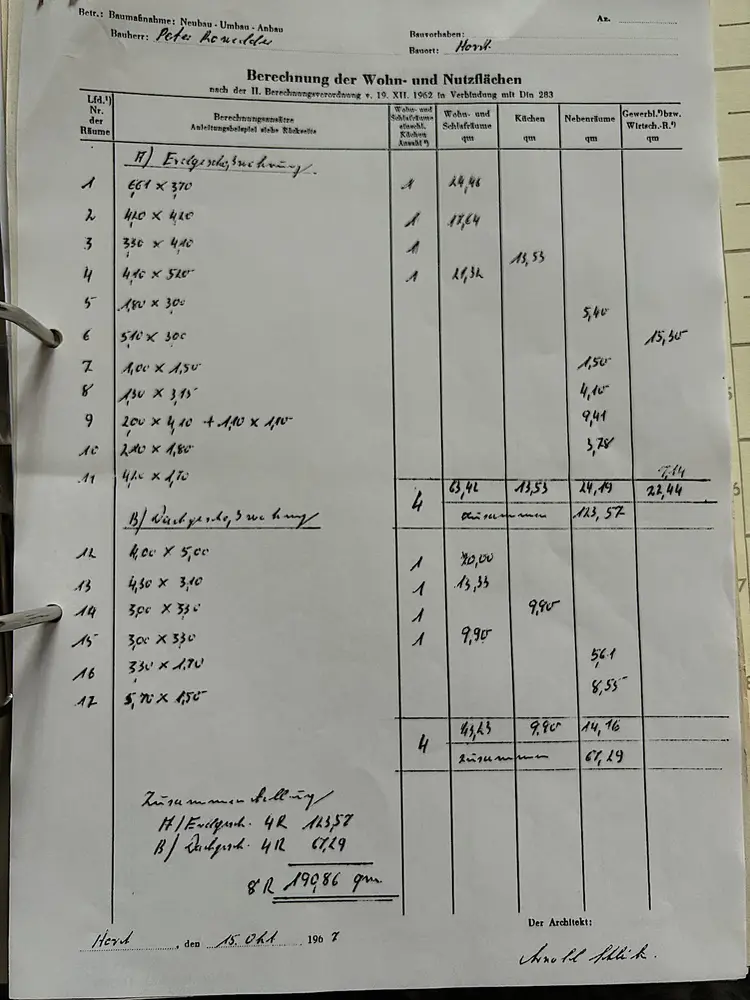 Betr.: Baumaßnahme: Neubau - Umbau - Anbau
Az.
Bauherr: Peter
Bauvorhaben:
Bauort: Horst
Berechnung der Wohn- und Nutzflächen
nach der II. Berechnungsverordnung v. 19. XII. 1962 in Verbindung mit Din 283
Lfd.¹) Nr. der Räume
Berechnungsansätze Anleitungsbeispiel siehe Rückseite
Wohn- und Schlafräume einschl. Küchen Anzahl ²)
Wohn- und Schlafräume qm
Küchen qm
Nebenräume qm
Gewerbl.³) bzw. Wirtsch.-R.⁴) qm
A) Erdgeschoßwohnung
1 6,61 x 3,70 1 24,46
2 4,20 x 4,20 1 17,64
3 3,30 x 4,10 1 13,53
4 4,10 x 5,20 1 21,32
5 1,80 x 3,00 5,40
6 5,10 x 3,00 15,30
7 1,00 x 1,50 1,50
8 1,30 x 3,15 4,10
9 2,00 x 4,10 + 1,10 x 1,10 9,41
10 2,10 x 1,80 3,78
11 4,20 x 1,70 7,14
4 63,42 13,53 24,19 22,44
zusammen 123,57
B) Dachgeschoßwohnung
12 4,00 x 5,00 1 20,00
13 4,30 x 3,10 1 13,33
14 3,00 x 3,30 1 9,90
15 3,00 x 3,30 1 9,90
16 3,30 x 1,70 5,61
17 5,70 x 1,50 8,55
4 43,23 9,90 14,16
zusammen 67,29
Zusammenstellung
A/ Erdgesch. 4 R 123,57
B/ Dachgesch. 4 R 67,29
8 R 190,86 qm
Der Architekt:
Horst, den 15. Okt 1967
Arnold